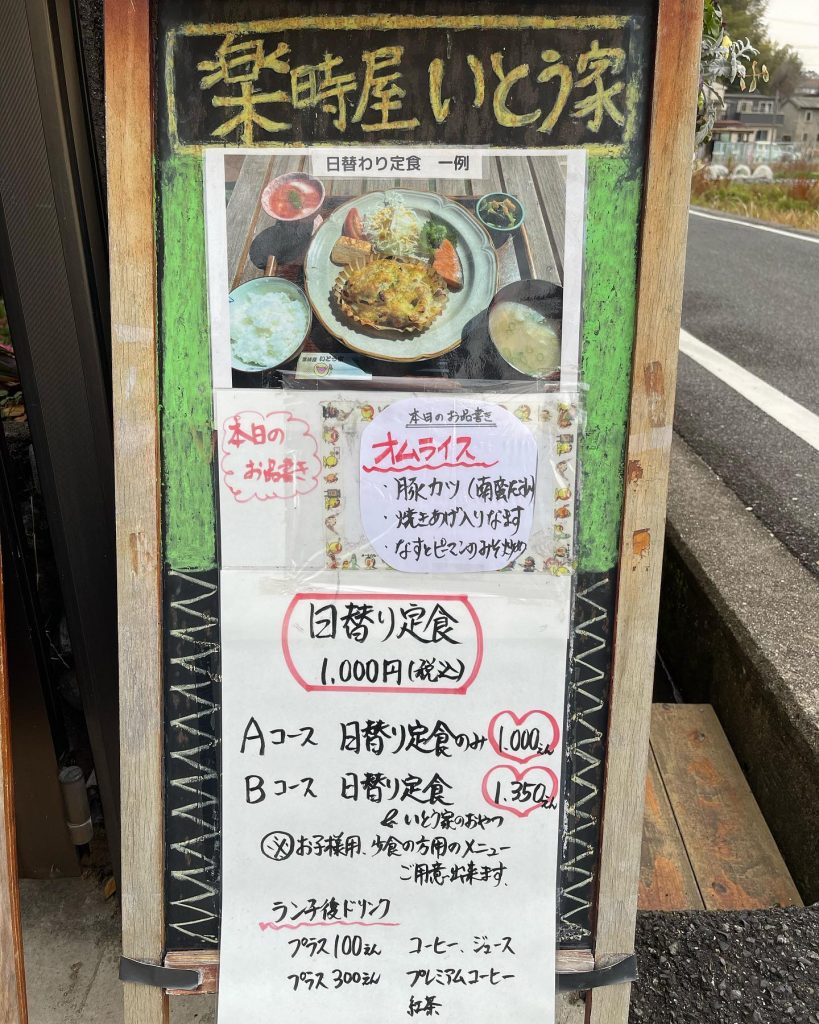 楽時屋 いとう家
日替わり定食 一例
楽時屋 いとう家
本日の
お品書き
本日のお品書き
オムライス
・豚カツ (南蛮だれ)
・焼きあげ入りなます
・なすとピーマンのみそ炒め
日替り定食
1,000円(税込)
Aコース 日替り定食のみ 1.000えん
Bコース 日替り定食 1.350えん
& いとう家のおやつ
※お子様用、少食の方用のメニュー
ご用意出来ます、
ランチ後ドリンク
プラス100えん コーヒー、ジュース
プラス300えん プレミアムコーヒー
紅茶